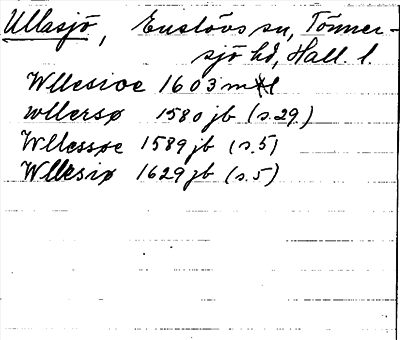 Ullasjö, Enslövs sn, Tönner-
sjö hd, Hall. l.
Wllesioe 1603 mtl
wllersø 1580 jb (s.29)
Wllessøe 1589 jb (s.5)
Wllesiø 1629 jb (s.5)